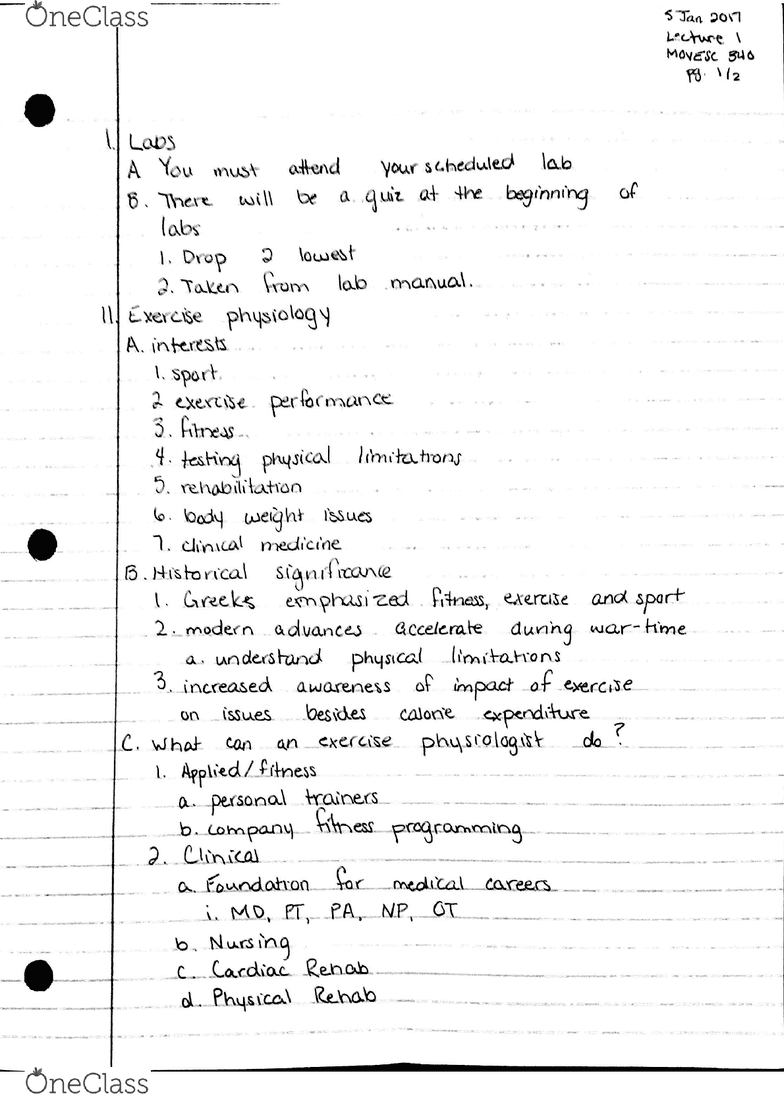 OneClass
5 Jan 2017
Lecture 1
MOVESC 340
pg. 1/2
I. Labs
A You must attend your scheduled lab
B. There will be a quiz at the beginning of
labs
1. Drop 2 lowest
2. Taken from lab manual.
II. Exercise physiology
A. interests
1. sport
2 exercise performance
3. fitness
4. testing physical limitations
5. rehabilitation
6. body weight issues
7. clinical medicine
B. Historical significance
1. Greeks emphasized fitness, exercise and sport
2. modern advances accelerate during war-time
a. understand physical limitations
3. increased awareness of impact of exercise
on issues besides calorie expenditure
C. What can an exercise physiologist do?
1. Applied/fitness
a. personal trainers
b. company fitness programming
2. Clinical
a. Foundation for medical careers
i. MD, PT, PA, NP, OT
b. Nursing
c. Cardiac Rehab
d. Physical Rehab
OneClass